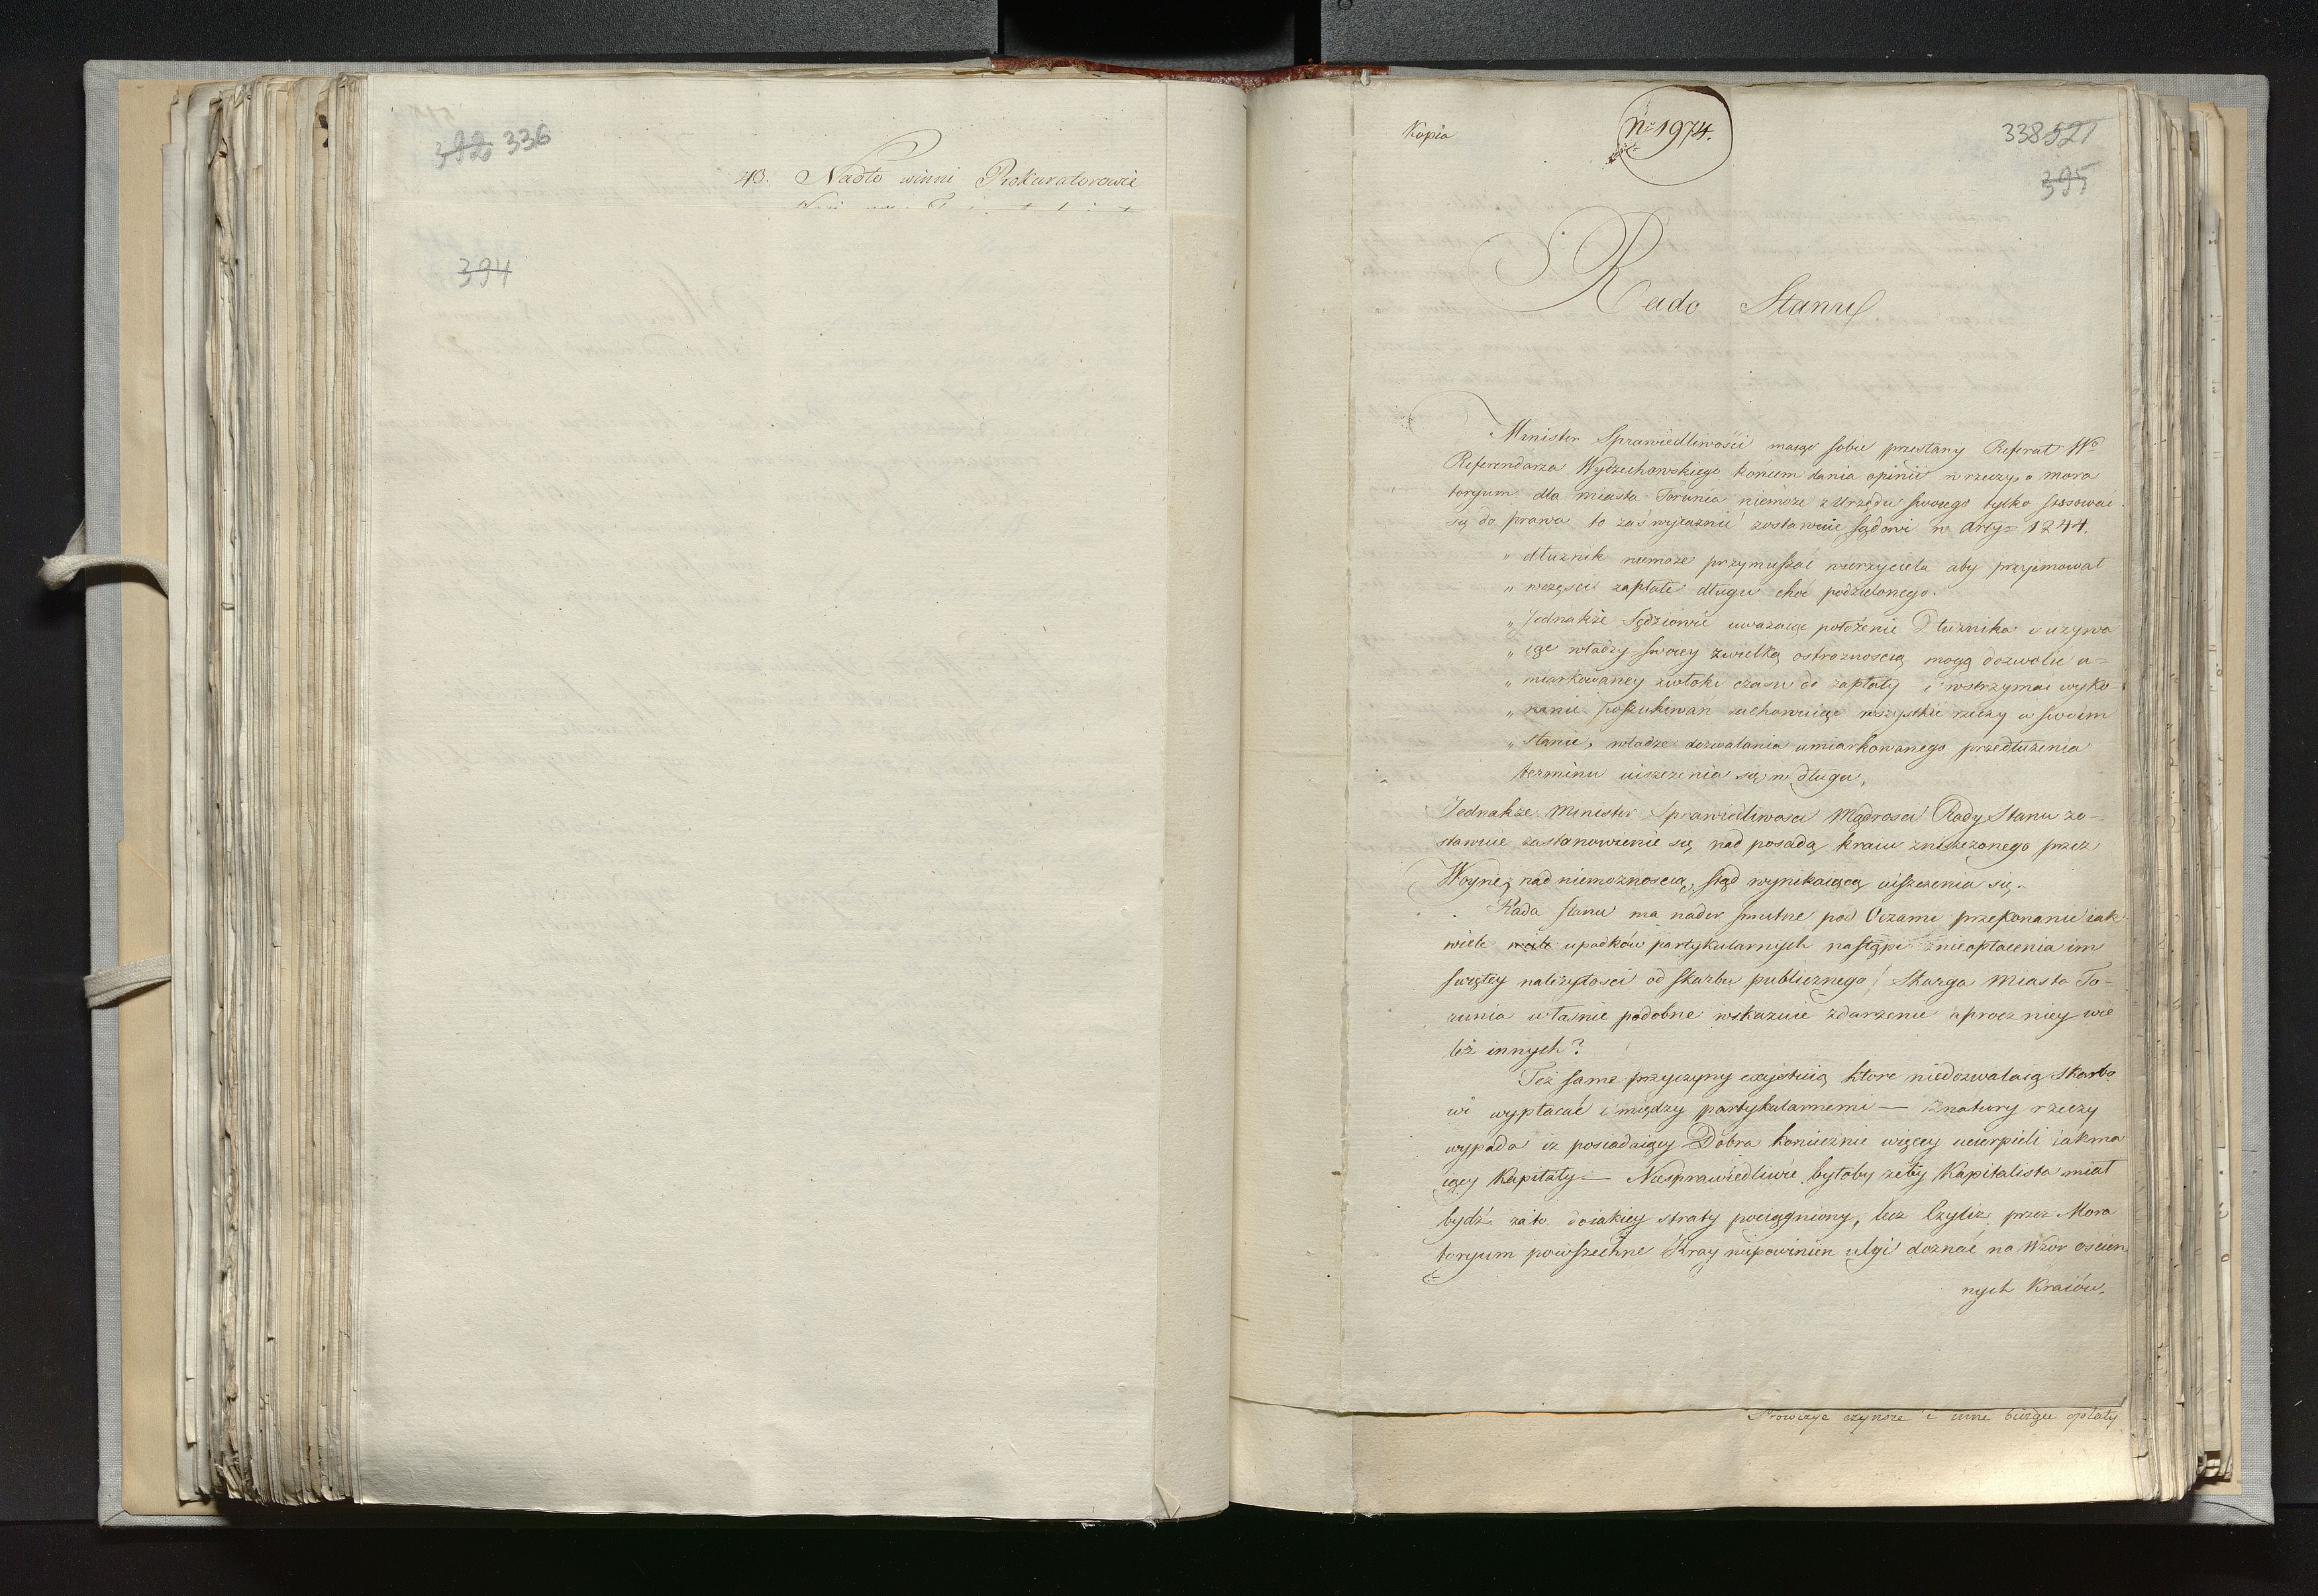 392 336
43. Nadto winni Prokuratorowie
394
Kopia
No 1974.
338 521
395
Rado Stanu
Minister Sprawiedliwości maiąc sobie przesłany Referat Wo
Referendarza Wydzechowskiego koncem dania opinii w rzeczy o mora
toryum dla miasta Torunia niemoże z Urzędu swoiego tylko stosować
się do prawa to zaś wyraznie zostawuie sądowi w Arty= 1244.
„ dłuznik niemoze przymuszać wierzyciela aby przyimował
„ wczęsci zapłatę długu choć podzielonego.
„ Jednakże Sędziowie uwazaiąc położenie Dłuznika i uzywa
„ iąc władzy swoiey zwielką ostroznoscią mogą dozwolic u=
„ miarkowaney zwłoki czasu do zapłaty i wstrzymać wyko-
„ nanie poszukiwan zachowuiąc wszystkie rzeczy w swoim
„ stanie, władze dozwalania umiarkowanego przedłuzenia
terminu uiszczenia się w długu,
Jednakze Minister Sprawiedliwosci Mądrosci Rady Stanu zo-
stawuie zastanowienie się nad posadą kraiu zniszczonego przez
Woynę, nad niemoznoscią stąd wynikaiącą uiszczenia się.
Rada stanu ma nader smutne pod Oczami przekonanie iak
wiele wiele upadków partykularnych nastąpi znieopłacenia im
swiętey nalezytosci od skarbu publicznego! Skarga Miasta To-
runia własnie podobne wskazuie zdarzenie aprocz niey wie
leż innych?
Też same przyczyny exystuią ktore niedozwalaią skarbo
wi wypłacać i między partykularnemi — znatury rzeczy
wypada iz posiadaiący Dobra koniecznie więcey ucierpieli iak ma
iący Kapitały — Niesprawiedliwie byłoby zeby Kapitalista miał
bydź zato doiakiey straty pociągniony, lecz czyliz przez Mora
toryum powszechne Kray niepowinien ulgi doznać na Wzór oscien
nych Kraiów.
Prowizye czynsze i inne bieżące opłaty